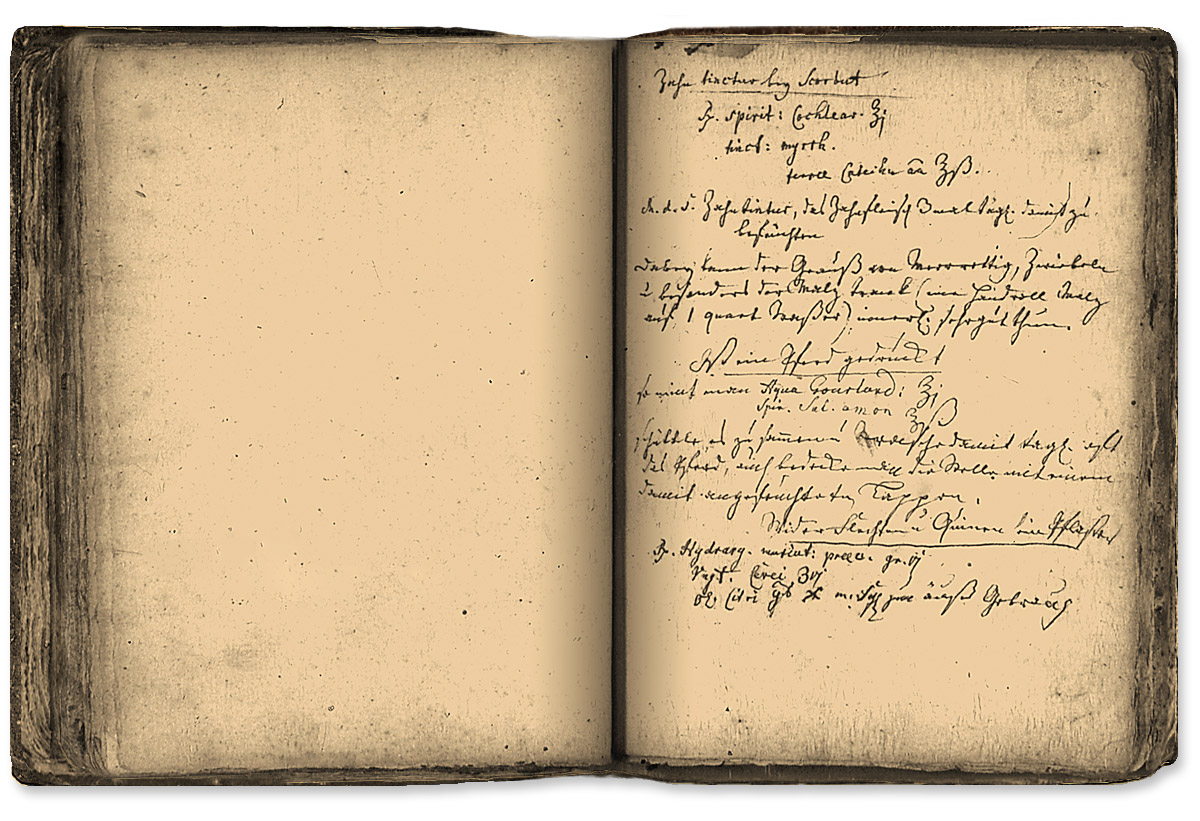 Zahn tinctur bey Scorbut
Rp. spirit: Cochlear. ℥j
tinct: myrrh.
terrae Catechu āā ℥ß.
M. d. S. Zahntinctur, das Zahnfleisch 3 mal tägl. damit zu
befeuchten
Dabey kann der Genuß von Meerrettig, Zwiebeln
u besonders der Malz trank (eine Handvoll Malz
auf 1 quart Waßer) innerl. sehr gut thun.
Ist ein Pferd gedrückt
so nimt man Aqua Goulard: ℥j
Spir. Sal. amon ℥ß
schüttle es zusammen u damit tägl.
das Pferd, auch bedecke man die Stelle mit einem
damit angefeuchteten Lappen.
Wider Flechten u ein Pflaster
Rp. Hydrarg. muriat: praec. gr. vj
Ungt. Cerei ʒij
Ol. Citri m. zum äuß Gebrauch